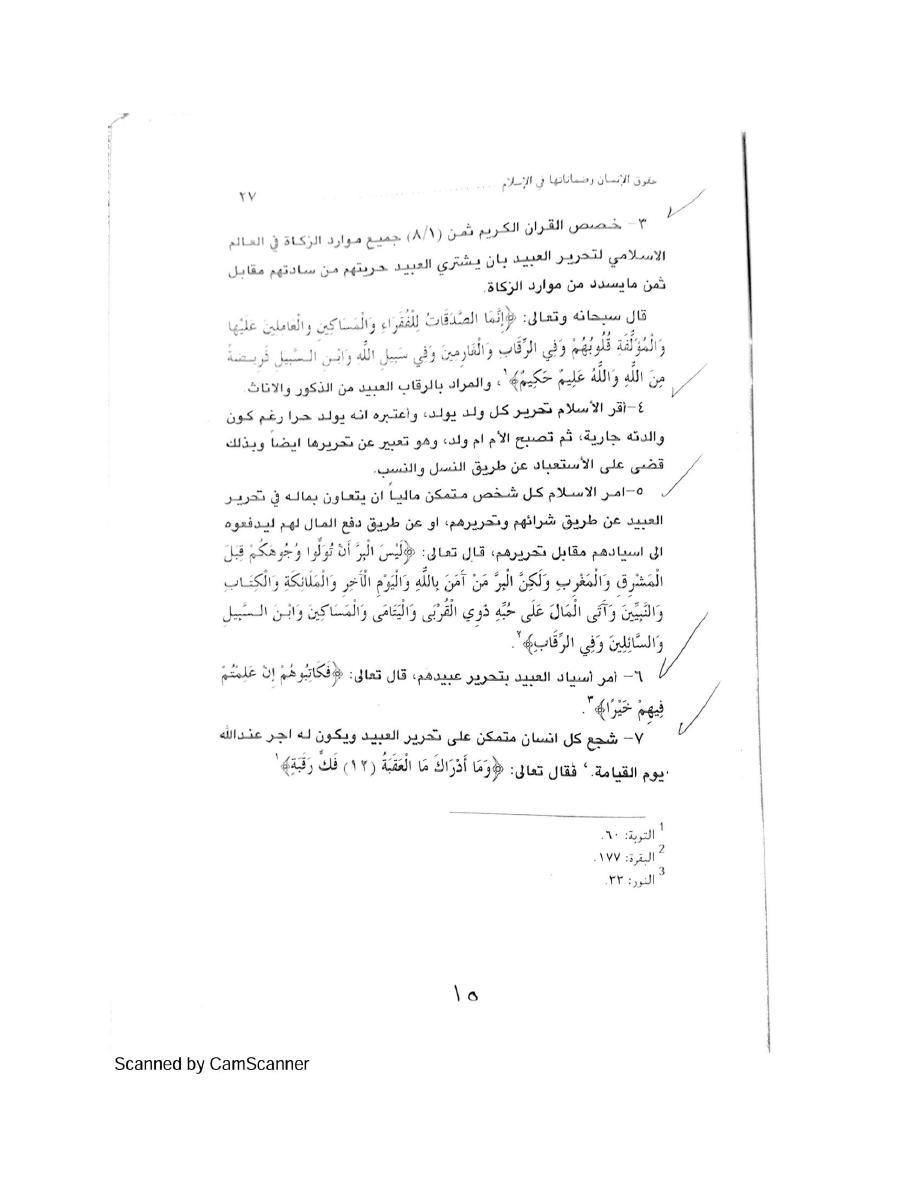 حقوق الإنسان وضماناتها في الإسلام
٢٧
٣- خصص القران الكريم ثمن (٨/١) جميع موارد الزكاة في العالم
الاسلامي لتحرير العبيد بان يشتري العبيد حريتهم من سادتهم مقابل
ثمن مايسدد من موارد الزكاة.
قال سبحانه وتعالى: ﴿إِنَّمَا الصَّدَقَاتُ لِلْفُقَرَاءِ وَالْمَسَاكِينِ وَالْعَامِلِينَ عَلَيْهَا
وَالْمُؤَلَّفَةِ قُلُوبُهُمْ وَفِي الرِّقَابِ وَالْغَارِمِينَ وَفِي سَبِيلِ اللَّهِ وَابْنِ السَّبِيلِ فَرِيضَةً
مِنَ اللَّهِ وَاللَّهُ عَلِيمٌ حَكِيمٌ﴾١، والمراد بالرقاب العبيد من الذكور والاناث.
٤-أقر الأسلام تحرير كل ولد يولد، وأعتبره انه يولد حرا رغم كون
والدته جارية، ثم تصبح الأم ام ولد، وهو تعبير عن تحريرها ايضاً وبذلك
قضى على الأستعباد عن طريق النسل والنسب.
٥-امر الاسلام كل شخص متمكن مالياً ان يتعاون بماله في تحرير
العبيد عن طريق شرائهم وتحريرهم، او عن طريق دفع المال لهم ليدفعوه
الى اسيادهم مقابل تحريرهم، قال تعالى: ﴿لَيْسَ الْبِرَّ أَنْ تُوَلُّوا وُجُوهَكُمْ قِبَلَ
الْمَشْرِقِ وَالْمَغْرِبِ وَلَكِنَّ الْبِرَّ مَنْ آمَنَ بِاللَّهِ وَالْيَوْمِ الْآخِرِ وَالْمَلَائِكَةِ وَالْكِتَابِ
وَالنَّبِيِّينَ وَآتَى الْمَالَ عَلَى حُبِّهِ ذَوِي الْقُرْبَى وَالْيَتَامَى وَالْمَسَاكِينَ وَابْنَ السَّبِيلِ
وَالسَّائِلِينَ وَفِي الرِّقَابِ﴾٢.
٦- أمر أسياد العبيد بتحرير عبيدهم، قال تعالى: ﴿فَكَاتِبُوهُمْ إِنْ عَلِمْتُمْ
فِيهِمْ خَيْرًا﴾٣.
٧- شجع كل انسان متمكن على تحرير العبيد ويكون له اجر عندالله
يوم القيامة.، فقال تعالى: ﴿وَمَا أَدْرَاكَ مَا الْعَقَبَةُ (١٢) فَكُّ رَقَبَةٍ﴾١
1 التوبة: ٦٠.
2 البقرة: ١٧٧.
3 النور: ٣٣.
١٥
Scanned by CamScanner